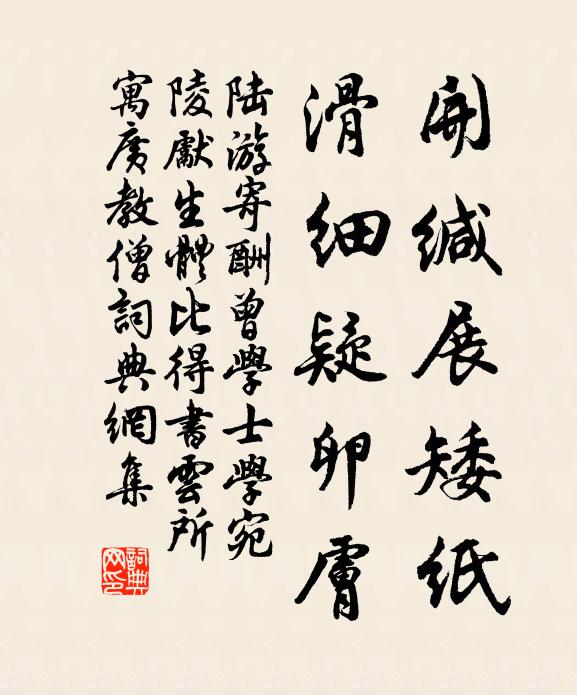 開緘展矮紙
滑細疑卵膚
陆游寄酬曾學士學宛
陵獻生體比得書雲所
寓廣教僧詞典網集
詞典網印